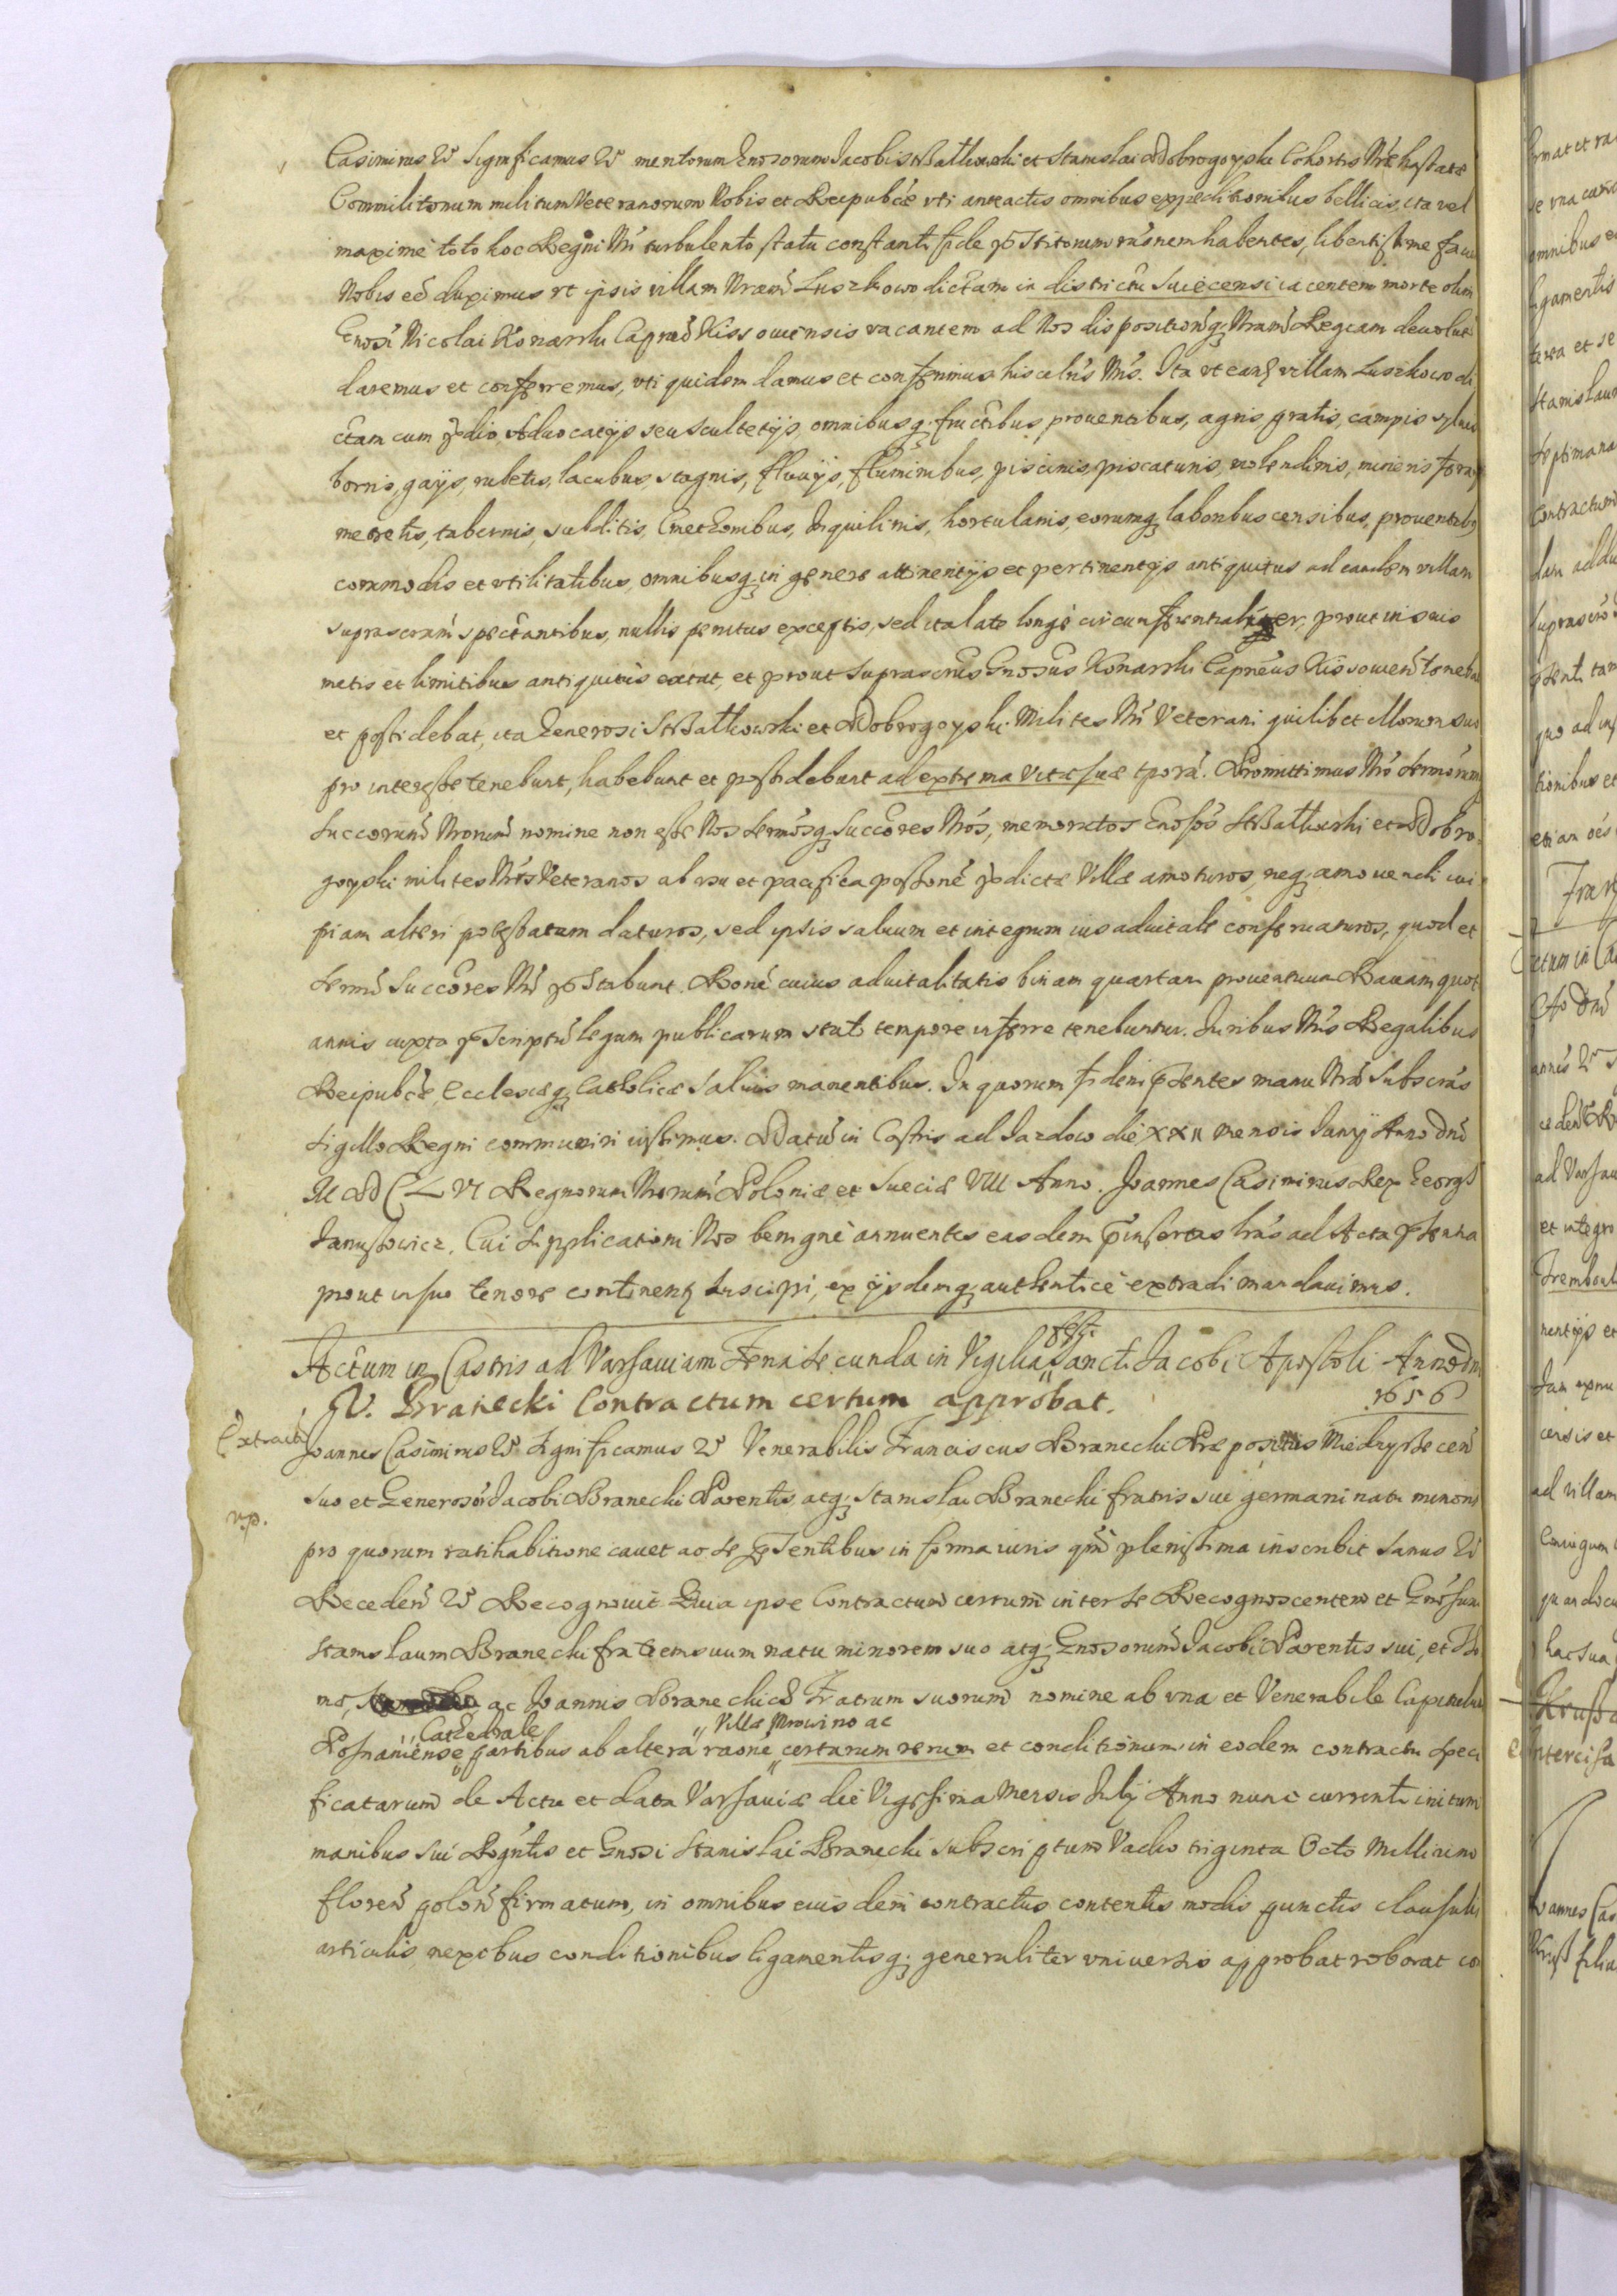 Casimirus &c Significamus &c meritorum Gnosorum Jacobi Białkowski et Stanislai Dobrogoyski Cohortis Nrae hastatae
Commilitonum militum Veteranorum Nobis et Reipubcae vti anteactis omnibus expeditionibus bellicis, ita vel
maximè toto hoc Regni Nri turbulento statu constanti fide praestitorum raonem habentes, libentissime
Nobis eē duximus vt ipsis villam Nram Luszkowo dictam in districtu Suiecensi iacentem morte olim
Gnosi Nicolai Konarski Capnei Kissouiensis vacantem ad Nos dispositionēq; Nram Regiam deuolutā
daremus et conferremus, vti quidem damus et conferimus hisce lris Nris. Ita vt eandē villam Luszkowo di
ctam cum praedio, Aduocatijs seu scultetijs, omnibusq; fructibus prouentibus, agris, pratis, campis syluis
bornis, gays, rubetis, lacubus, stagnis, fluuijs, fluminibus, piscinis, piscaturis, molendinis,
meretis, tabernis, subditis, Cmethonibus, Inquilinis, hortulanis, eorumq; laboribus censibus, prouentibq
commodis et vtilitatibus, omnibusq; in genere attinentijs et pertinentijs antiquitus ad eandem villam
suprascram spectantibus, nullis penitus exceptis, sed ita late longè circumferentialiter, prout in suis
metis et limitibus antiquitus extat, et prout Suprascrus Gnosus Konarski Capneus Kissouien tenebat
et possidebat, ita Generosi Białkowski et Dobrogoyski Milites Nri Veterani quilibet illorum suo
pro interesse tenebunt, habebunt et possidebunt ad extrema vitae suae tpora. Promittimus Nro Sermorum
Succorum Nrorum nomine non esse Nos Sermosq; Succores Nros, memoratos Gnosos Białkowski et Dobro-
goyski milites Nros Veteranos ab vsu et pacifica possone praedictae Villae amoturos, neq; amouendi cui
piam alteri potestatem daturos, sed ipsis saluum et integrum ius aduitale conseruaturos, quod et
Sermi Succores Nri praestabunt. Rone cuius aduitalitatis binam quartam prouentuum Rauam quot
annis iuxta praescriptū legum publicarum stato tempore inferre tenebuntur. Juribus Nris Regalibus
Reipubcae, Ecclesiaeq; Catholicae Saluis manentibus. In quorum fidem praesentes manu Nra Subscras
Sigillo Regni communiri iussimus. Datū in Castris ad Jazdow die XXII mensis Junij Anno Dni
M D C L VI Regnorum Nrorum Poloniae et Sueciae VIII Anno. Joannes Casimirus Rex Georgꝰ
Janussowicz. Cui Supplicationi Nos benignè annuentes easdem praeinsertas lras ad Acta praesentia
prout in suo tenore continentʳ suscipi, ex ijsdemq; authenticè extradi mandauimus.
festi
Actum in Castris ad Varsauiam Feria Secunda in Vigilia Sancti Jacobi Apostoli Anno Dni
1656
V. Branecki Contractum certum approbat.
Extractū
Joannes Casimirus &c Significamus &c Venerabilis Franciscus Branecki Praepositus Miedzyrzecen
suo et Generosor Jacobi Branecki Parentis atq; Stanislai Branecki fratris sui germani natu minoris
pro quorum ratihabitione cauet ac se praesentibus in forma iuris qm plenissima inscribit Sanus &c
Receden &c Recognouit Quia ipse Contractum certum inter se Recognoscentem et Gnosum
Stanislaum Branecki fratrem suum natu minorem suo atq; Gnosorum Jacobi Parentis sui, et Tho
mae, ac Joannis Braneckich Fratrum suorum nomine ab vna et Venerabile Capitulum
Cathedrale Villae Mrowino ac
Posnaniense partibus ab altera raone certarum rerum et conditionum in eodem contractu speci
ficatarum de Actu et data Varsauiae die Vigesima Mensis Julij Anno nunc currenti initum
manibus sui Rogntis et Gnosi Stanislai Branecki subscriptum Vadio triginta Octo Millium
floren polon firmatum, in omnibus eiusdem contractus contentis modis punctis clausulis
articulis, nexibus conditionibus ligamentisq; generaliter vniuersis approbat roborat